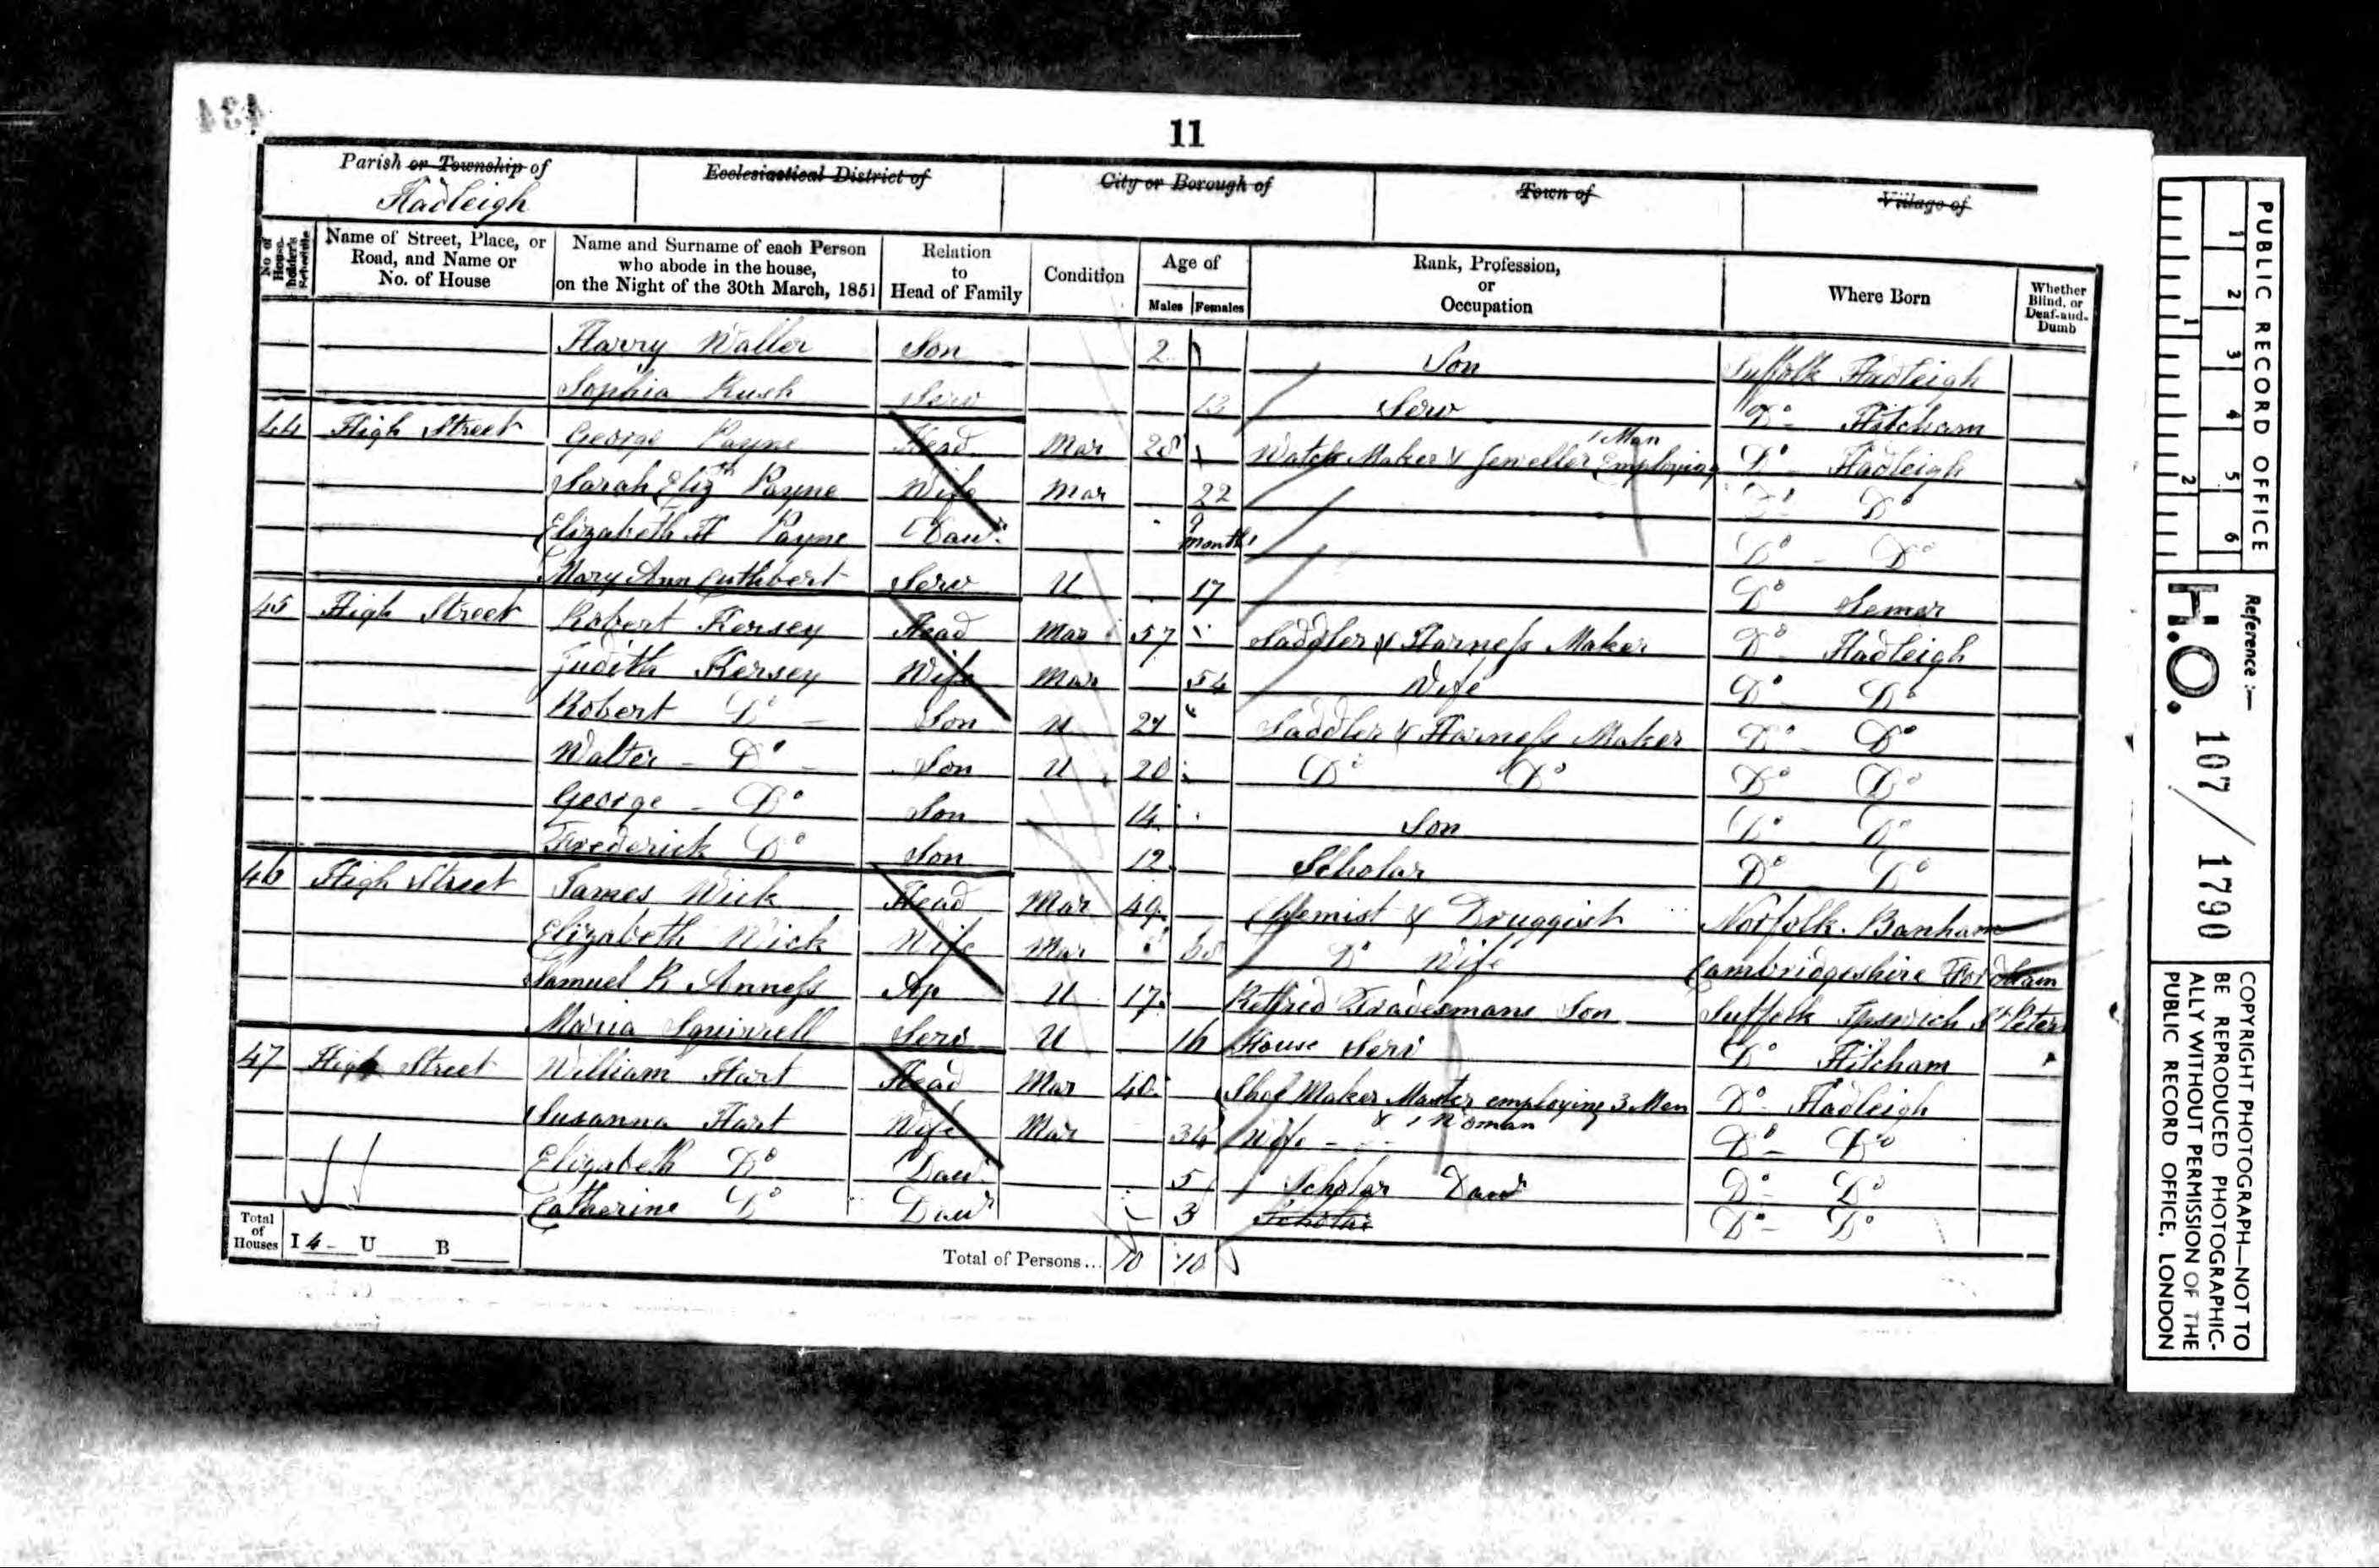 434
11
Parish or Township of
Hadleigh
Ecclesiastical District of
City or Borough of
Town of
Village of
No of House-holder's Schedule
Name of Street, Place, or Road, and Name or No. of House
Name and Surname of each Person who abode in the house, on the Night of the 30th March, 1851
Relation to Head of Family
Condition
Age of
Males Females
Rank, Profession, or Occupation
Where Born
Whether Blind, or Deaf-and-Dumb
Harry Waller Son 2 Son Suffolk Hadleigh
Sophia Rush Serv 13 Serv Do Hitcham
44 High Street George Payne Head Mar 28 Watch Maker & Jeweller Employing 1 Man Do Hadleigh
Sarah Elizth Payne Wife Mar 22 Do Do
Elizabeth H Payne Daur 9 months Do Do
Mary Ann Cuthbert Serv U 17 Do Semer
45 High Street Robert Kersey Head Mar 57 Saddler & Harness Maker Do Hadleigh
Judith Kersey Wife Mar 54 Wife Do Do
Robert Do Son U Saddler & Harness Maker Do Do
Walter Do Son U 20 Do Do Do Do
George Do Son 14 Son Do Do
Frederick Do Son 12 Scholar Do Do
46 High Street James Wick Head Mar 49 Chemist & Druggist Norfolk Banham
Elizabeth Wick Wife Mar Do Wife Cambridgeshire Fordham
Samuel R Anness Ap U 17 Retired Tradesmans Son Suffolk Ipswich St Peters
Maria Squirrell Serv U 16 House Serv Do Hitcham
47 High Street William Hart Head Mar 40 Shoe Maker Master employing 3 Men & 1 Woman Do Hadleigh
Susanna Hart Wife Mar 34 Wife Do Do
Elizabeth Do Daur 5 Scholar Daur Do Do
Catherine Do Daur 3 Scholar Do Do
Total of Houses I 4 U B
Total of Persons... 10 10
PUBLIC RECORD OFFICE
1 2 3 4 5 6
1 2
Reference :—
H.O. 107 / 1790
COPYRIGHT PHOTOGRAPH—NOT TO
BE REPRODUCED PHOTOGRAPHIC-
ALLY WITHOUT PERMISSION OF THE
PUBLIC RECORD OFFICE, LONDON